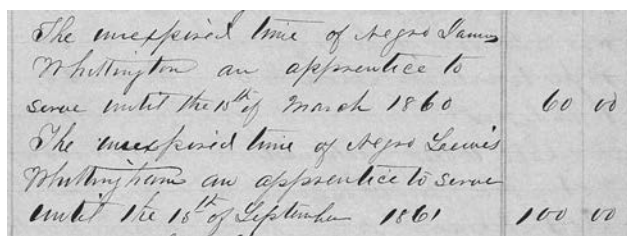 The unexpired time of Negro James
Whittington an apprentice to
serve until the 15th of March 1860 60 00
The unexpired time of Negro Lewis
Whittingham an apprentice to serve
until the 15th of September 1861 100 00